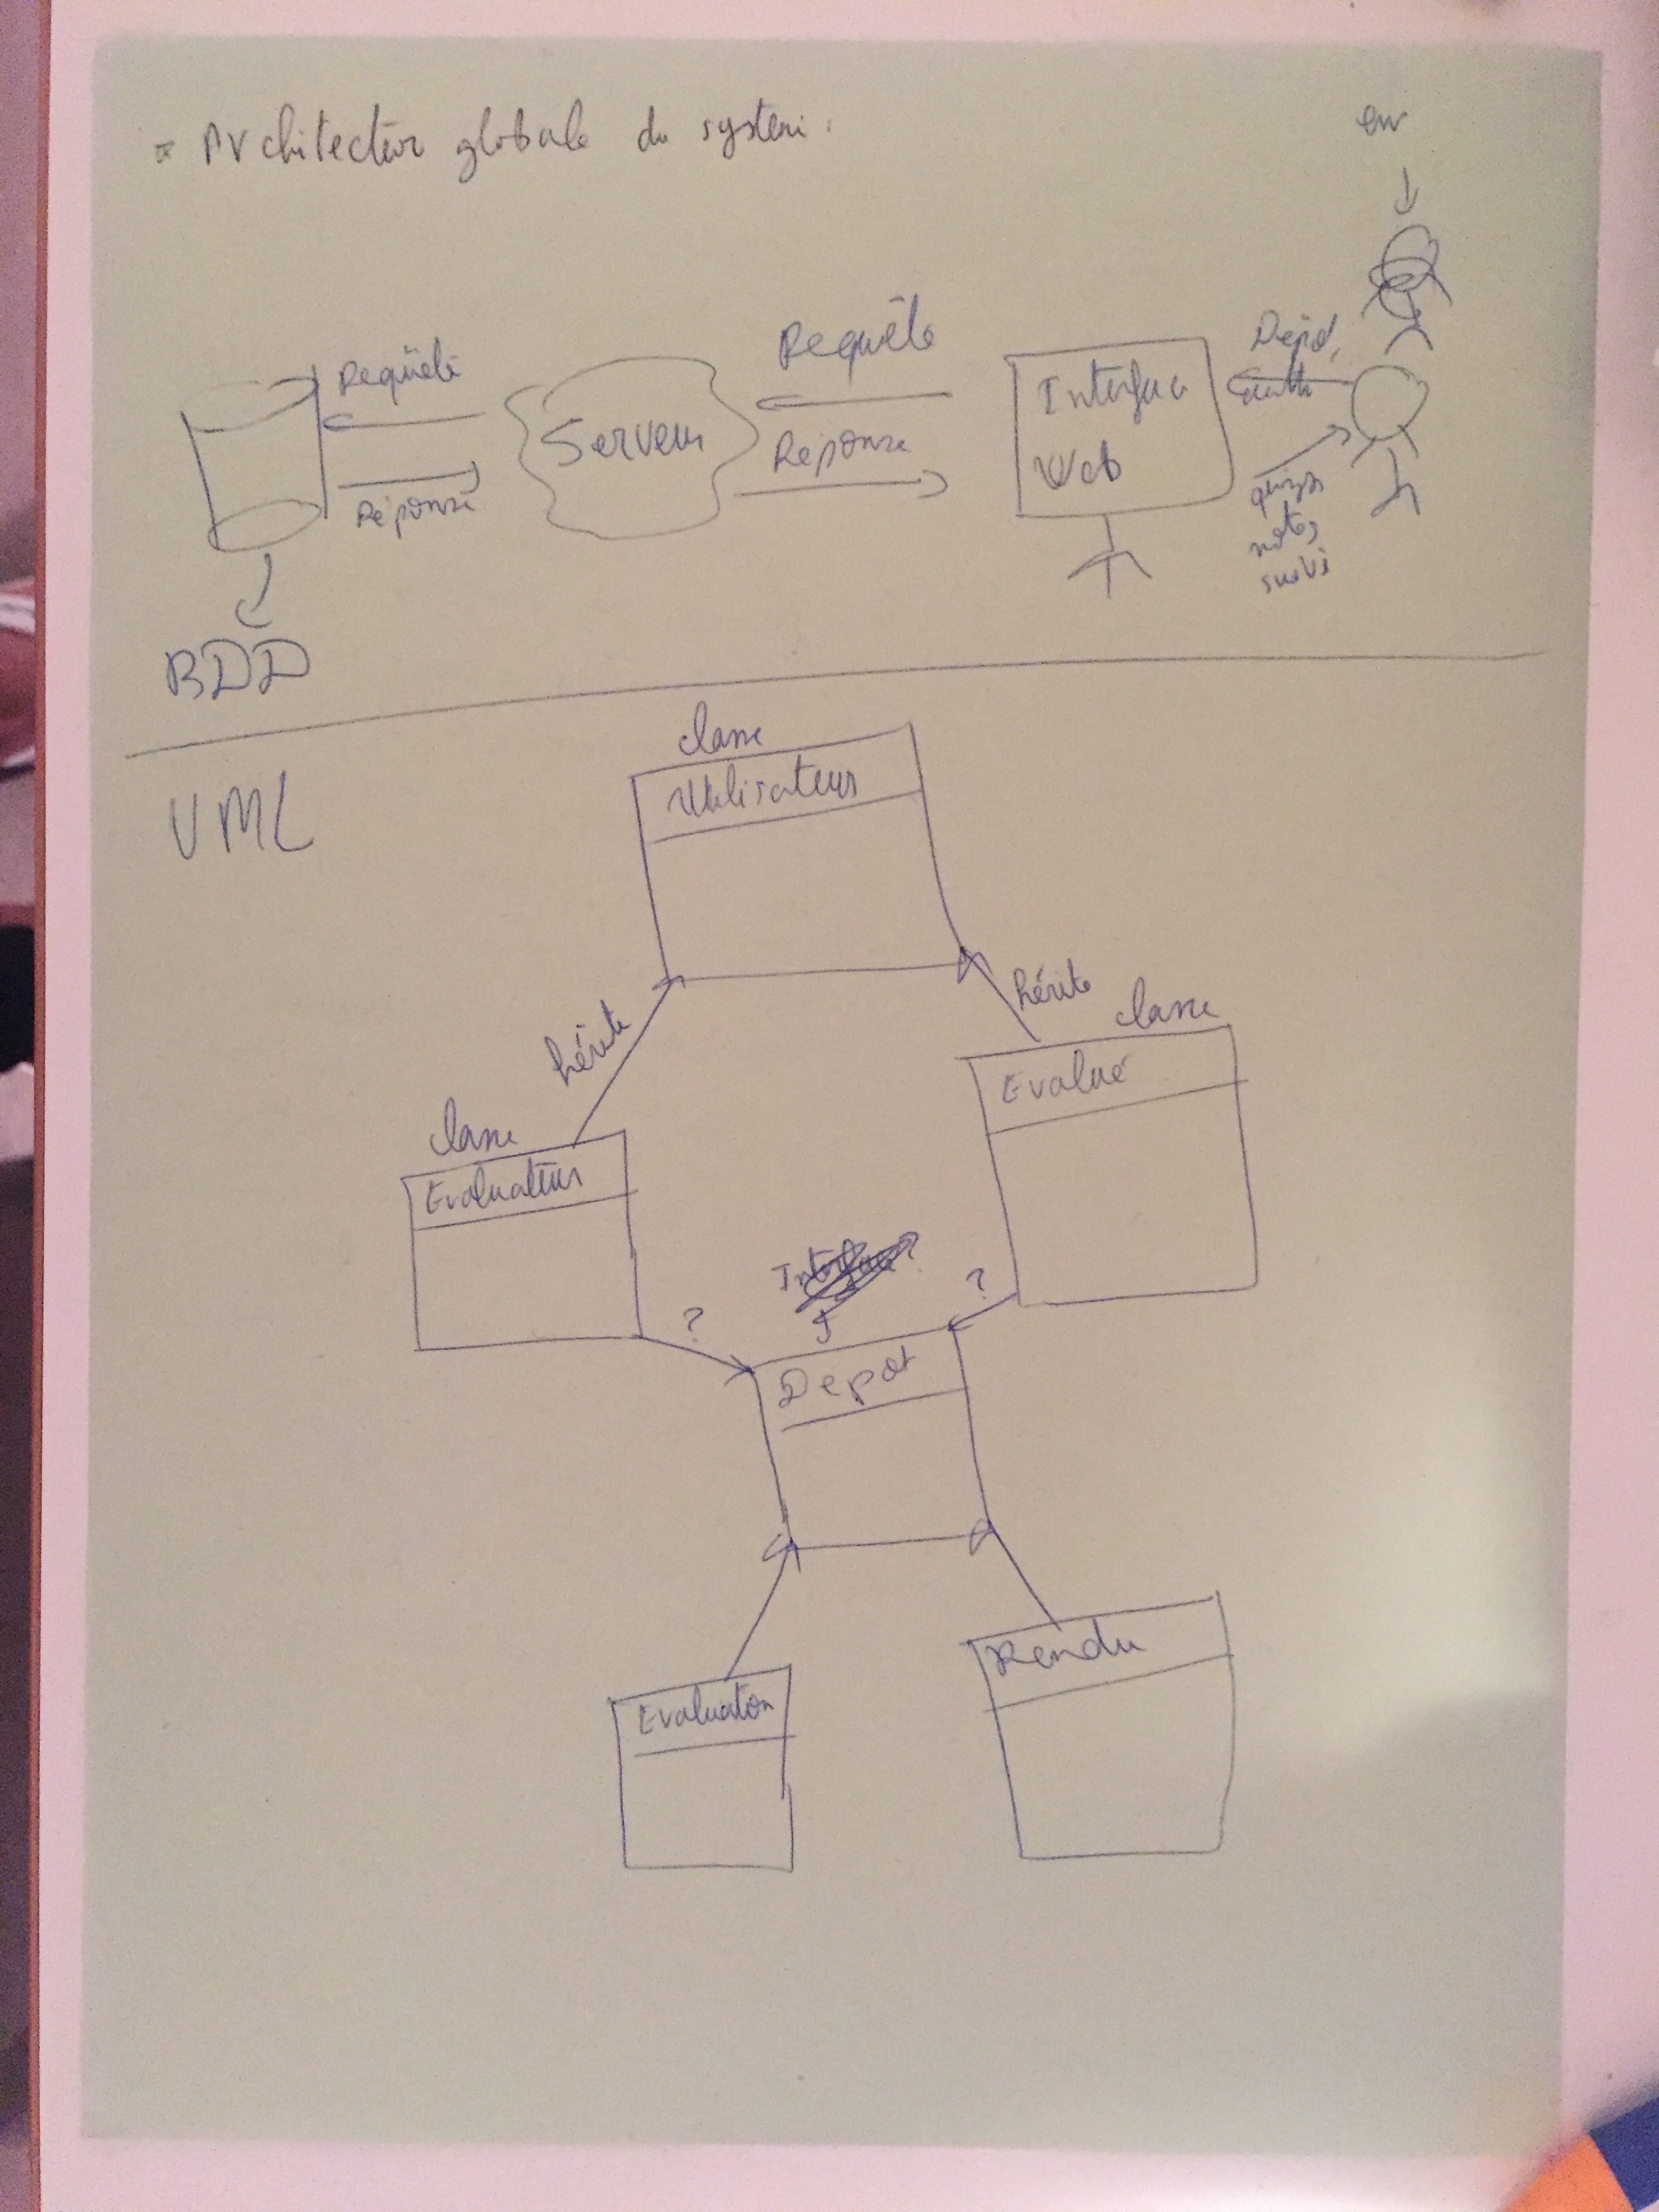 Architectur globale du systeme.
Requête
Réponse
Serveur
Requête
Réponse
Interface
Web
Dépot,
quizz
notes,
suivi
BDD
UML
classe
Utilisateur
hérite
hérite
classe
Evalué
classe
Evaluateur
Interface?
?
?
Depot
Evaluation
Rendu